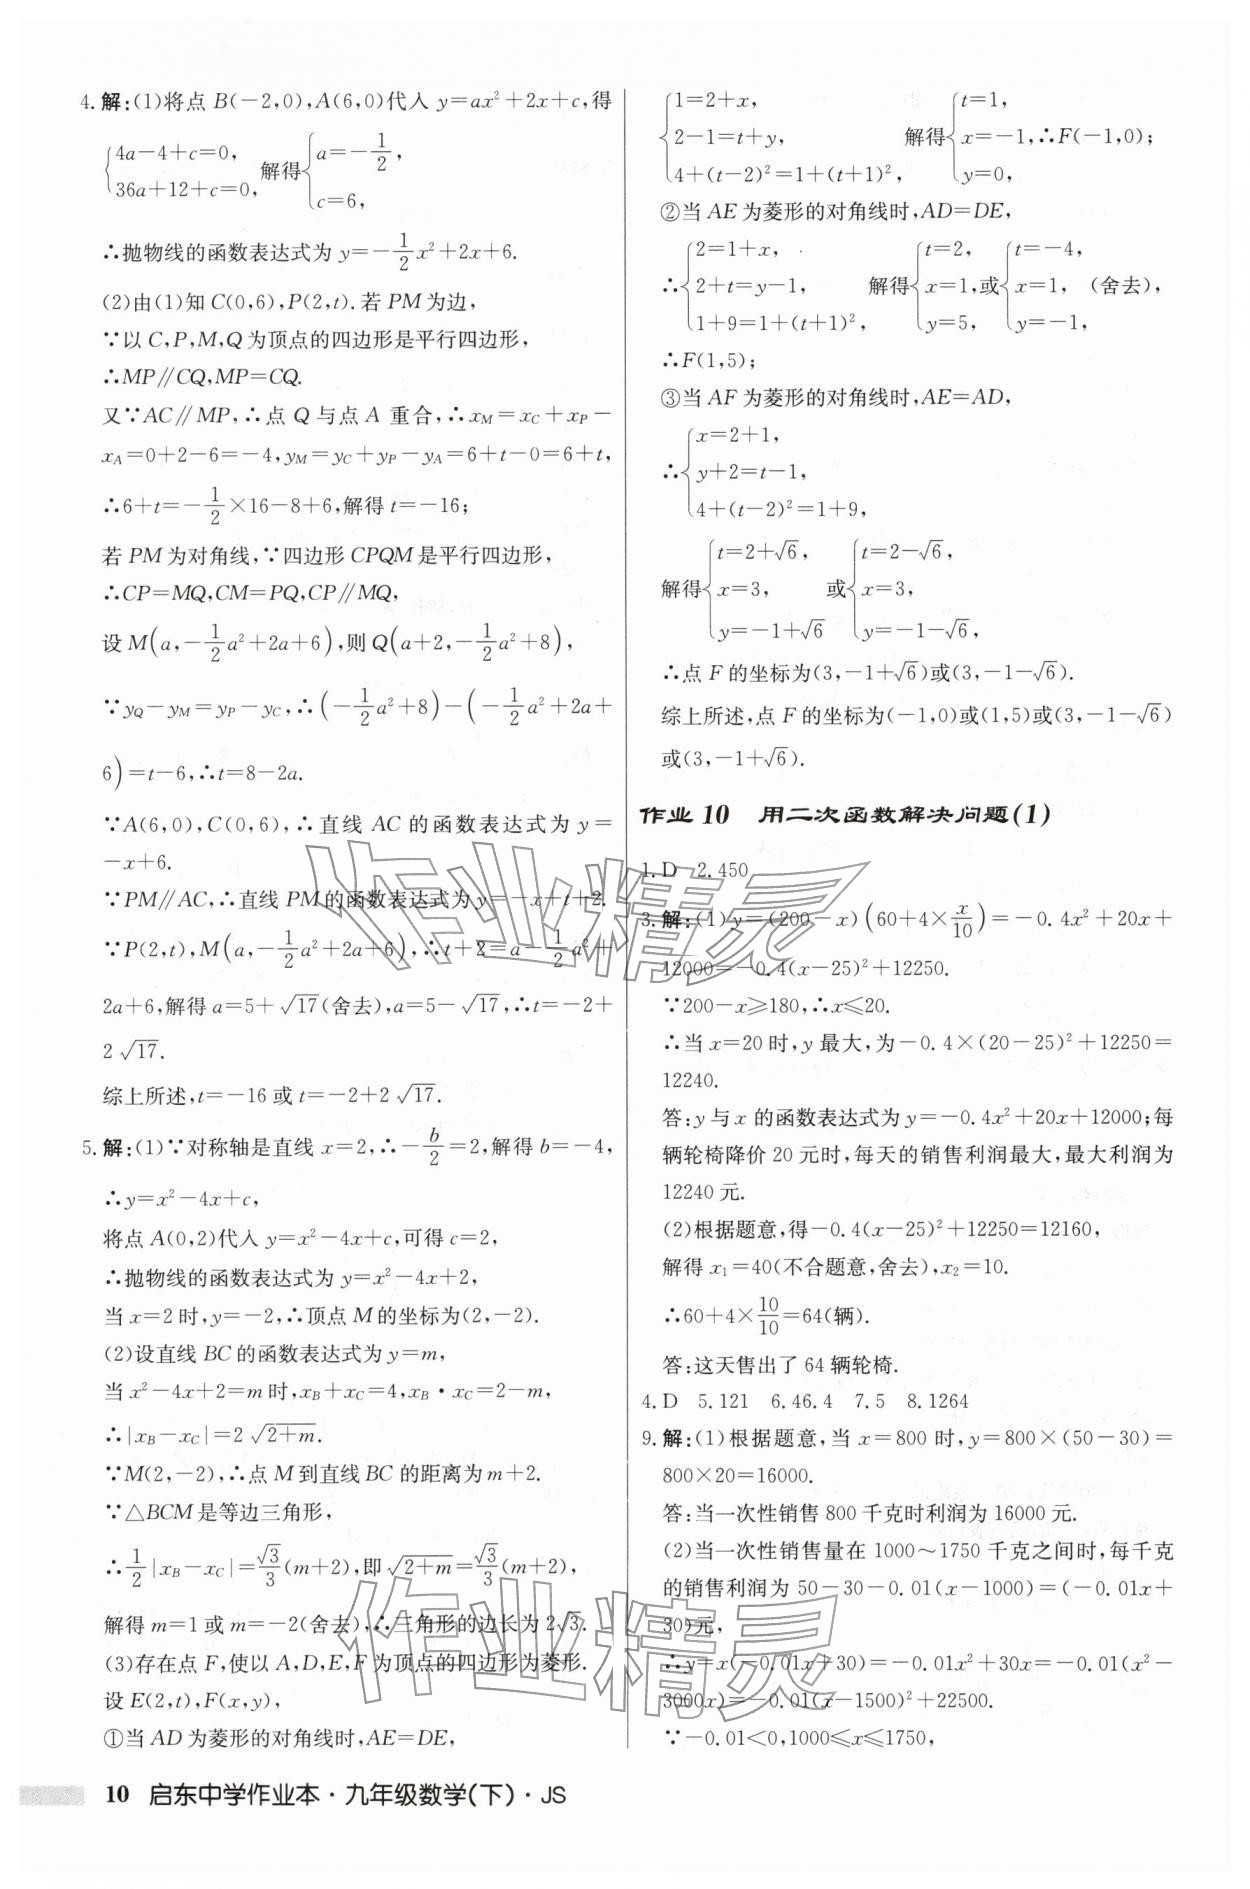 4. 解:(1)将点 B(-2,0),A(6,0)代入 y=ax²+2x+c,得
{4a-4+c=0, 36a+12+c=0, 解得{a=-1/2, c=6,
∴抛物线的函数表达式为 y=-1/2x²+2x+6.
(2)由(1)知 C(0,6),P(2,t). 若 PM 为边,
∵以 C,P,M,Q 为顶点的四边形是平行四边形,
∴MP∥CQ,MP=CQ.
又∵AC∥MP,∴点 Q 与点 A 重合,∴x_M=x_C+x_P-
x_A=0+2-6=-4,y_M=y_C+y_P-y_A=6+t-0=6+t,
∴6+t=-1/2×16-8+6,解得 t=-16;
若 PM 为对角线,∵四边形 CPQM 是平行四边形,
∴CP=MQ,CM=PQ,CP∥MQ,
设 M(a,-1/2a²+2a+6),则 Q(a+2,-1/2a²+8),
∵y_Q-y_M=y_P-y_C,∴(-1/2a²+8)-(-1/2a²+2a+
6)=t-6,∴t=8-2a.
∵A(6,0),C(0,6),∴直线 AC 的函数表达式为 y=
-x+6.
∵PM∥AC,∴直线 PM 的函数表达式为 y=-x+t+2.
∵P(2,t),M(a,-1/2a²+2a+6),∴t+2=a-1/2a²+
2a+6,解得 a=5+√17(舍去),a=5-√17,∴t=-2+
2√17.
综上所述,t=-16 或 t=-2+2√17.
5. 解:(1)∵对称轴是直线 x=2,∴-b/2=2,解得 b=-4,
∴y=x²-4x+c,
将点 A(0,2)代入 y=x²-4x+c,可得 c=2,
∴抛物线的函数表达式为 y=x²-4x+2,
当 x=2 时,y=-2,∴顶点 M 的坐标为(2,-2).
(2)设直线 BC 的函数表达式为 y=m,
当 x²-4x+2=m 时,x_B+x_C=4,x_B·x_C=2-m,
∴|x_B-x_C|=2√(2+m).
∵M(2,-2),∴点 M 到直线 BC 的距离为 m+2.
∵△BCM 是等边三角形,
∴1/2|x_B-x_C|=√3/3(m+2),即√(2+m)=√3/3(m+2),
解得 m=1 或 m=-2(舍去),∴三角形的边长为 2√3.
(3)存在点 F,使以 A,D,E,F 为顶点的四边形为菱形.
设 E(2,t),F(x,y),
①当 AD 为菱形的对角线时,AE=DE,
{1=2+x, 2-1=t+y, 4+(t-2)²=1+(t+1)², 解得{t=1, x=-1, y=0, ∴F(-1,0);
②当 AE 为菱形的对角线时,AD=DE,
∴{2=1+x, 2+t=y-1, 1+9=1+(t+1)², 解得{t=2, x=1, y=5, 或{t=-4, x=1, y=-1, (舍去),
∴F(1,5);
③当 AF 为菱形的对角线时,AE=AD,
∴{x=2+1, y+2=t-1, 4+(t-2)²=1+9,
解得{t=2+√6, x=3, y=-1+√6 或{t=2-√6, x=3, y=-1-√6,
∴点 F 的坐标为(3,-1+√6)或(3,-1-√6).
综上所述,点 F 的坐标为(-1,0)或(1,5)或(3,-1-√6)
或(3,-1+√6).
作业 10 用二次函数解决问题(1)
1. D 2. 450
3. 解:(1)y=(200-x)(60+4×x/10)=-0.4x²+20x+
12000=-0.4(x-25)²+12250.
∵200-x≥180,∴x≤20.
∴当 x=20 时,y 最大,为-0.4×(20-25)²+12250=
12240.
答:y 与 x 的函数表达式为 y=-0.4x²+20x+12000;每
辆轮椅降价 20 元时,每天的销售利润最大,最大利润为
12240 元.
(2)根据题意,得-0.4(x-25)²+12250=12160,
解得 x₁=40(不合题意,舍去),x₂=10.
∴60+4×10/10=64(辆).
答:这天售出了 64 辆轮椅.
4. D 5. 121 6. 46.4 7. 5 8. 1264
9. 解:(1)根据题意,当 x=800 时,y=800×(50-30)=
800×20=16000.
答:当一次性销售 800 千克时利润为 16000 元.
(2)当一次性销售量在 1000~1750 千克之间时,每千克
的销售利润为 50-30-0.01(x-1000)=(-0.01x+
30)元,
∴y=x(-0.01x+30)=-0.01x²+30x=-0.01(x²-
3000x)=-0.01(x-1500)²+22500.
∵-0.01<0,1000≤x≤1750,
作业精灵
作业精灵
10 启东中学作业本·九年级数学(下)·JS